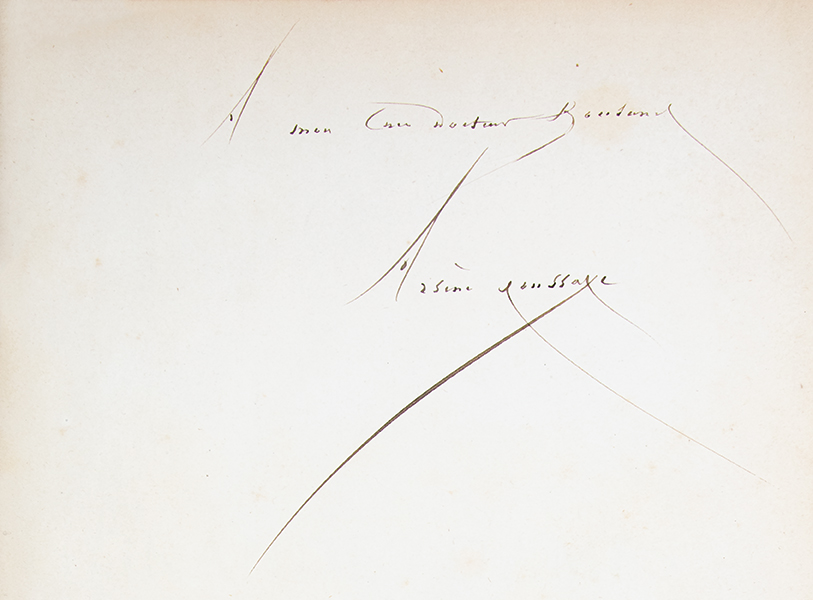 A mon Cher Docteur
Arsène Houssaye